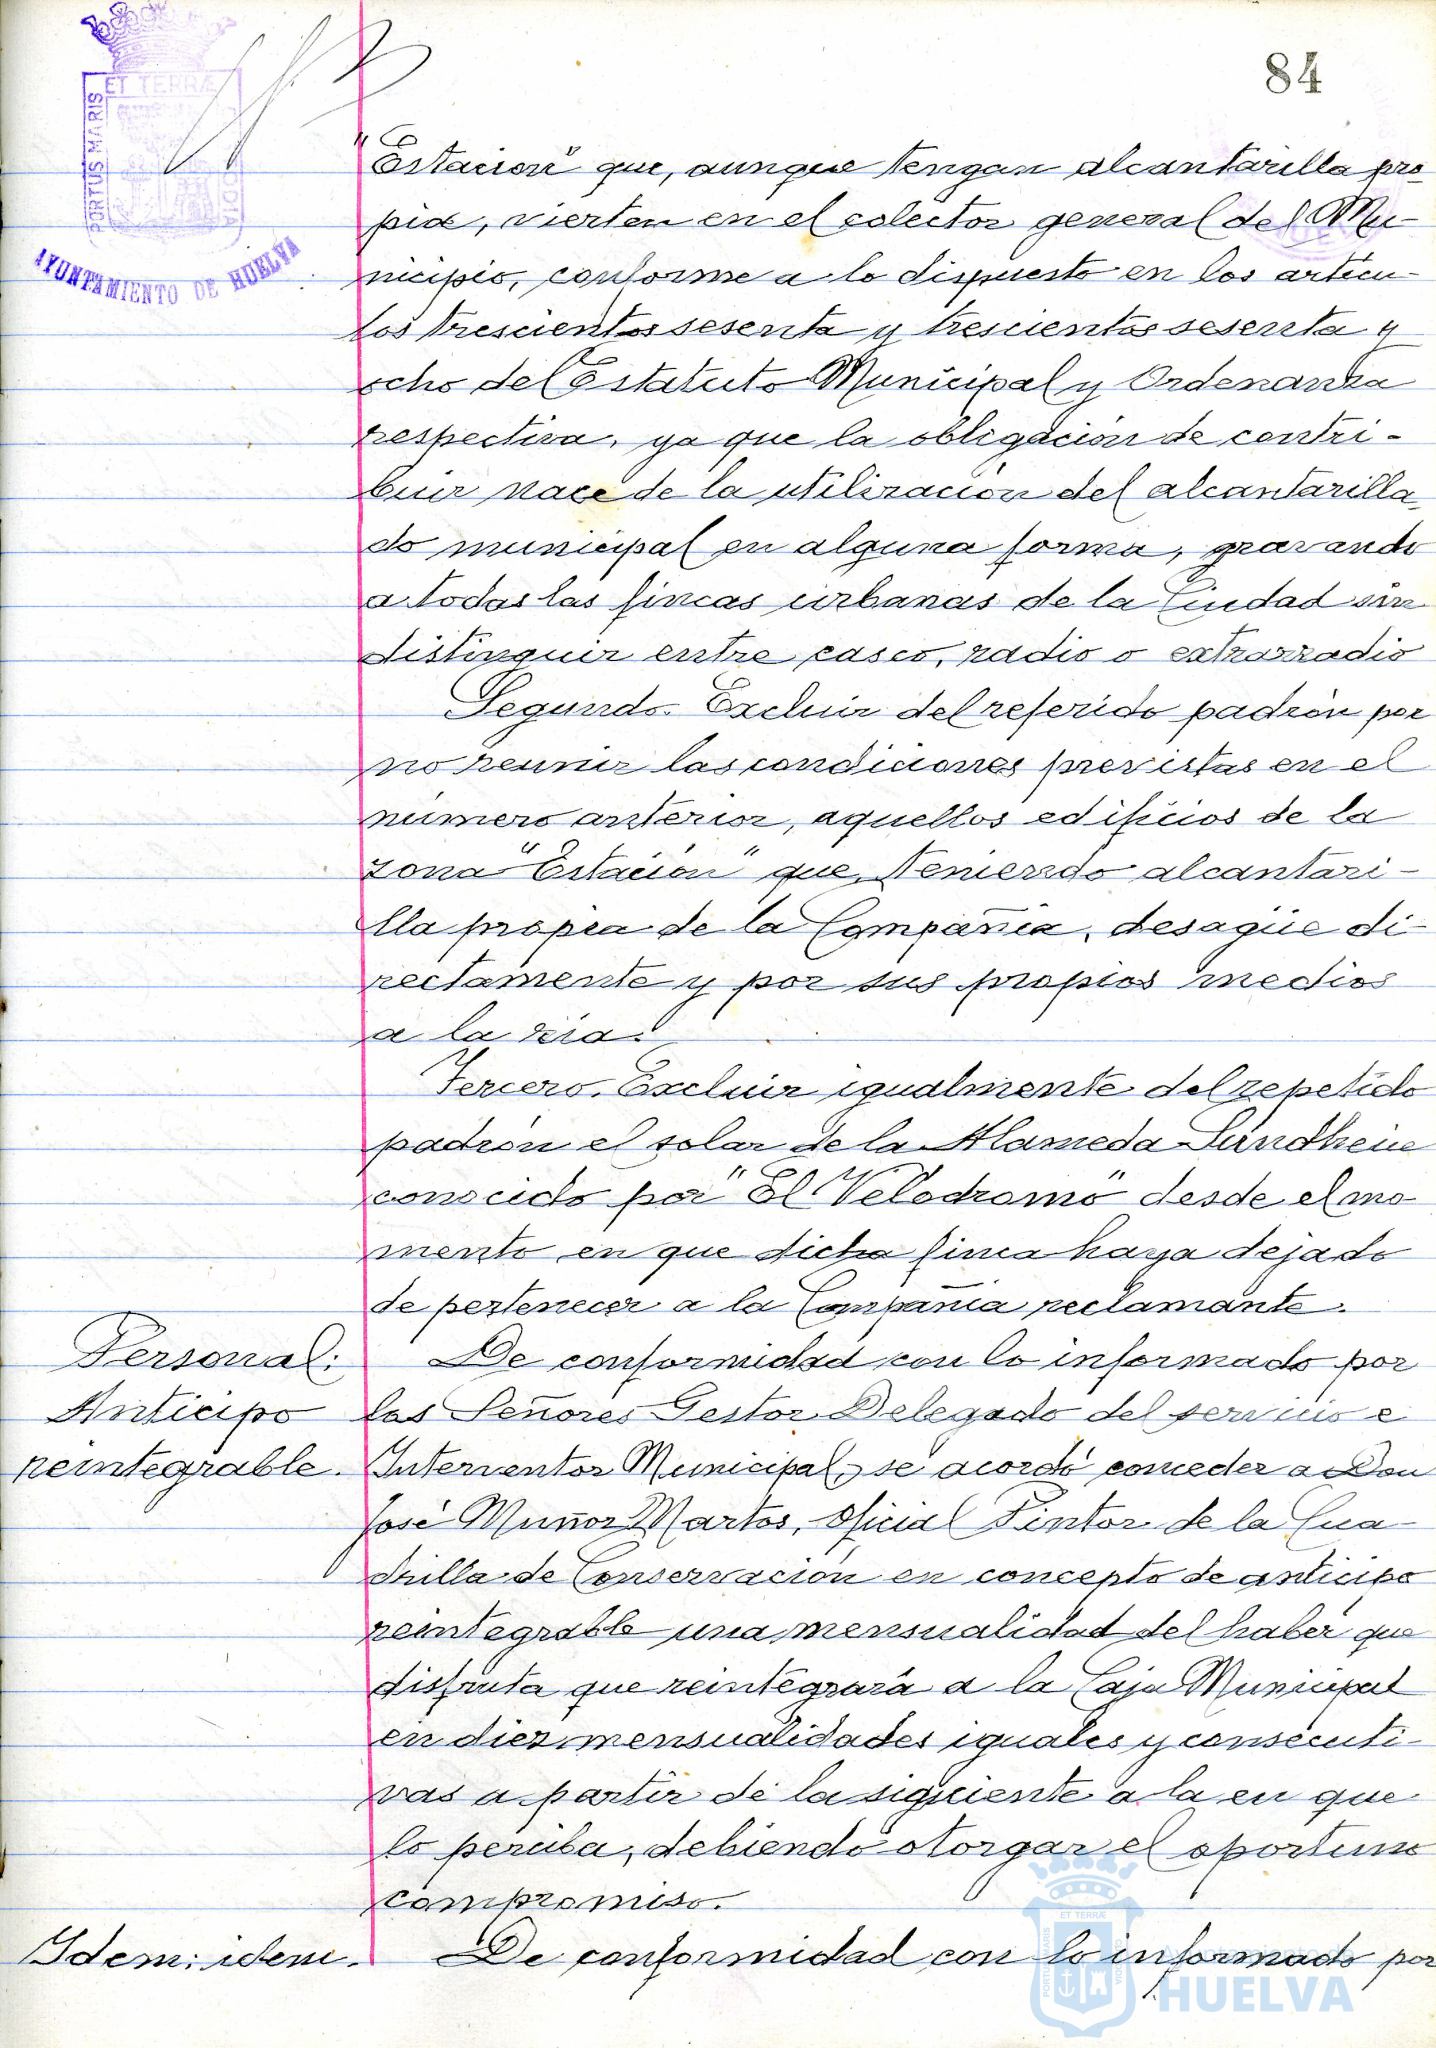 84
ET TERRÆ
PORTUS MARIS
AYUNTAMIENTO DE HUELVA
"Estación" que, aunque tengan alcantarilla pro-
pia, vierten en el colector general del Mu-
nicipio, conforme a lo dispuesto en los articu-
los trescientos sesenta y trescientos sesenta y
ocho del Estatuto Municipal y Ordenanza
respectiva, ya que la obligación de contri-
buir nace de la utilización del alcantarilla-
do municipal en alguna forma, gravando
a todas las fincas urbanas de la Ciudad sin
distinguir entre casco, radio o extrarradio
Segundo. Excluir del referido padrón por
no reunir las condiciones previstas en el
número anterior, aquellos edificios de la
zona "Estación" que, teniendo alcantari-
lla propia de la Compañia, desagüe di-
rectamente y por sus propios medios
a la ria.
Tercero. Excluir igualmente del repetido
padrón el solar de la Alameda Sundhein
conocido por "El Velodromo" desde el mo-
mento en que dicha finca haya dejado
de pertenecer a la Compañia reclamante.
Personal:
Anticipo
reintegrable.
De conformidad con lo informado por
los Señores Gestor Delegado del servicio e
Interventor Municipal, se acordó conceder a Don
José Muñoz Martos, Oficial Pintor de la Cua-
drilla de Conservación en concepto de anticipo
reintegrable una mensualidad del haber que
disfruta que reintegrará a la Caja Municipal
en diez mensualidades iguales y consecuti-
vas a partir de la siguiente a la en que
lo perciba, debiendo otorgar el oportuno
compromiso.
Idem: idem.
De conformidad con lo informado por
ET TERRÆ
PORTUS MARIS
Ayuntamiento de
HUELVA